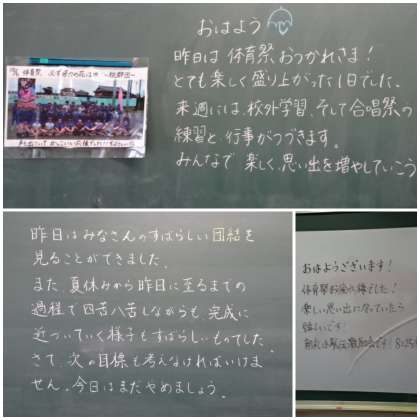 おはよう
昨日は体育祭、おつかれさま！
とても楽しく盛り上がった1日でした。
来週には、校外学習、そして合唱祭の
練習と、行事がつづきます。
みんなで楽しく、思い出を増やしていこう
体育祭
昨日はみなさんのすばらしい団結を
見ることができました。
また、夏休みから昨日に至るまでの
過程で四苦八苦しながらも、完成に
近づいていく様子もすばらしいものでした。
さて、次の目標も考えなければいけま
せん。今日はまだやめましょう。
おはようございます！
体育祭お疲れ様でした！
楽しい思い出になっていたら
嬉しいです！